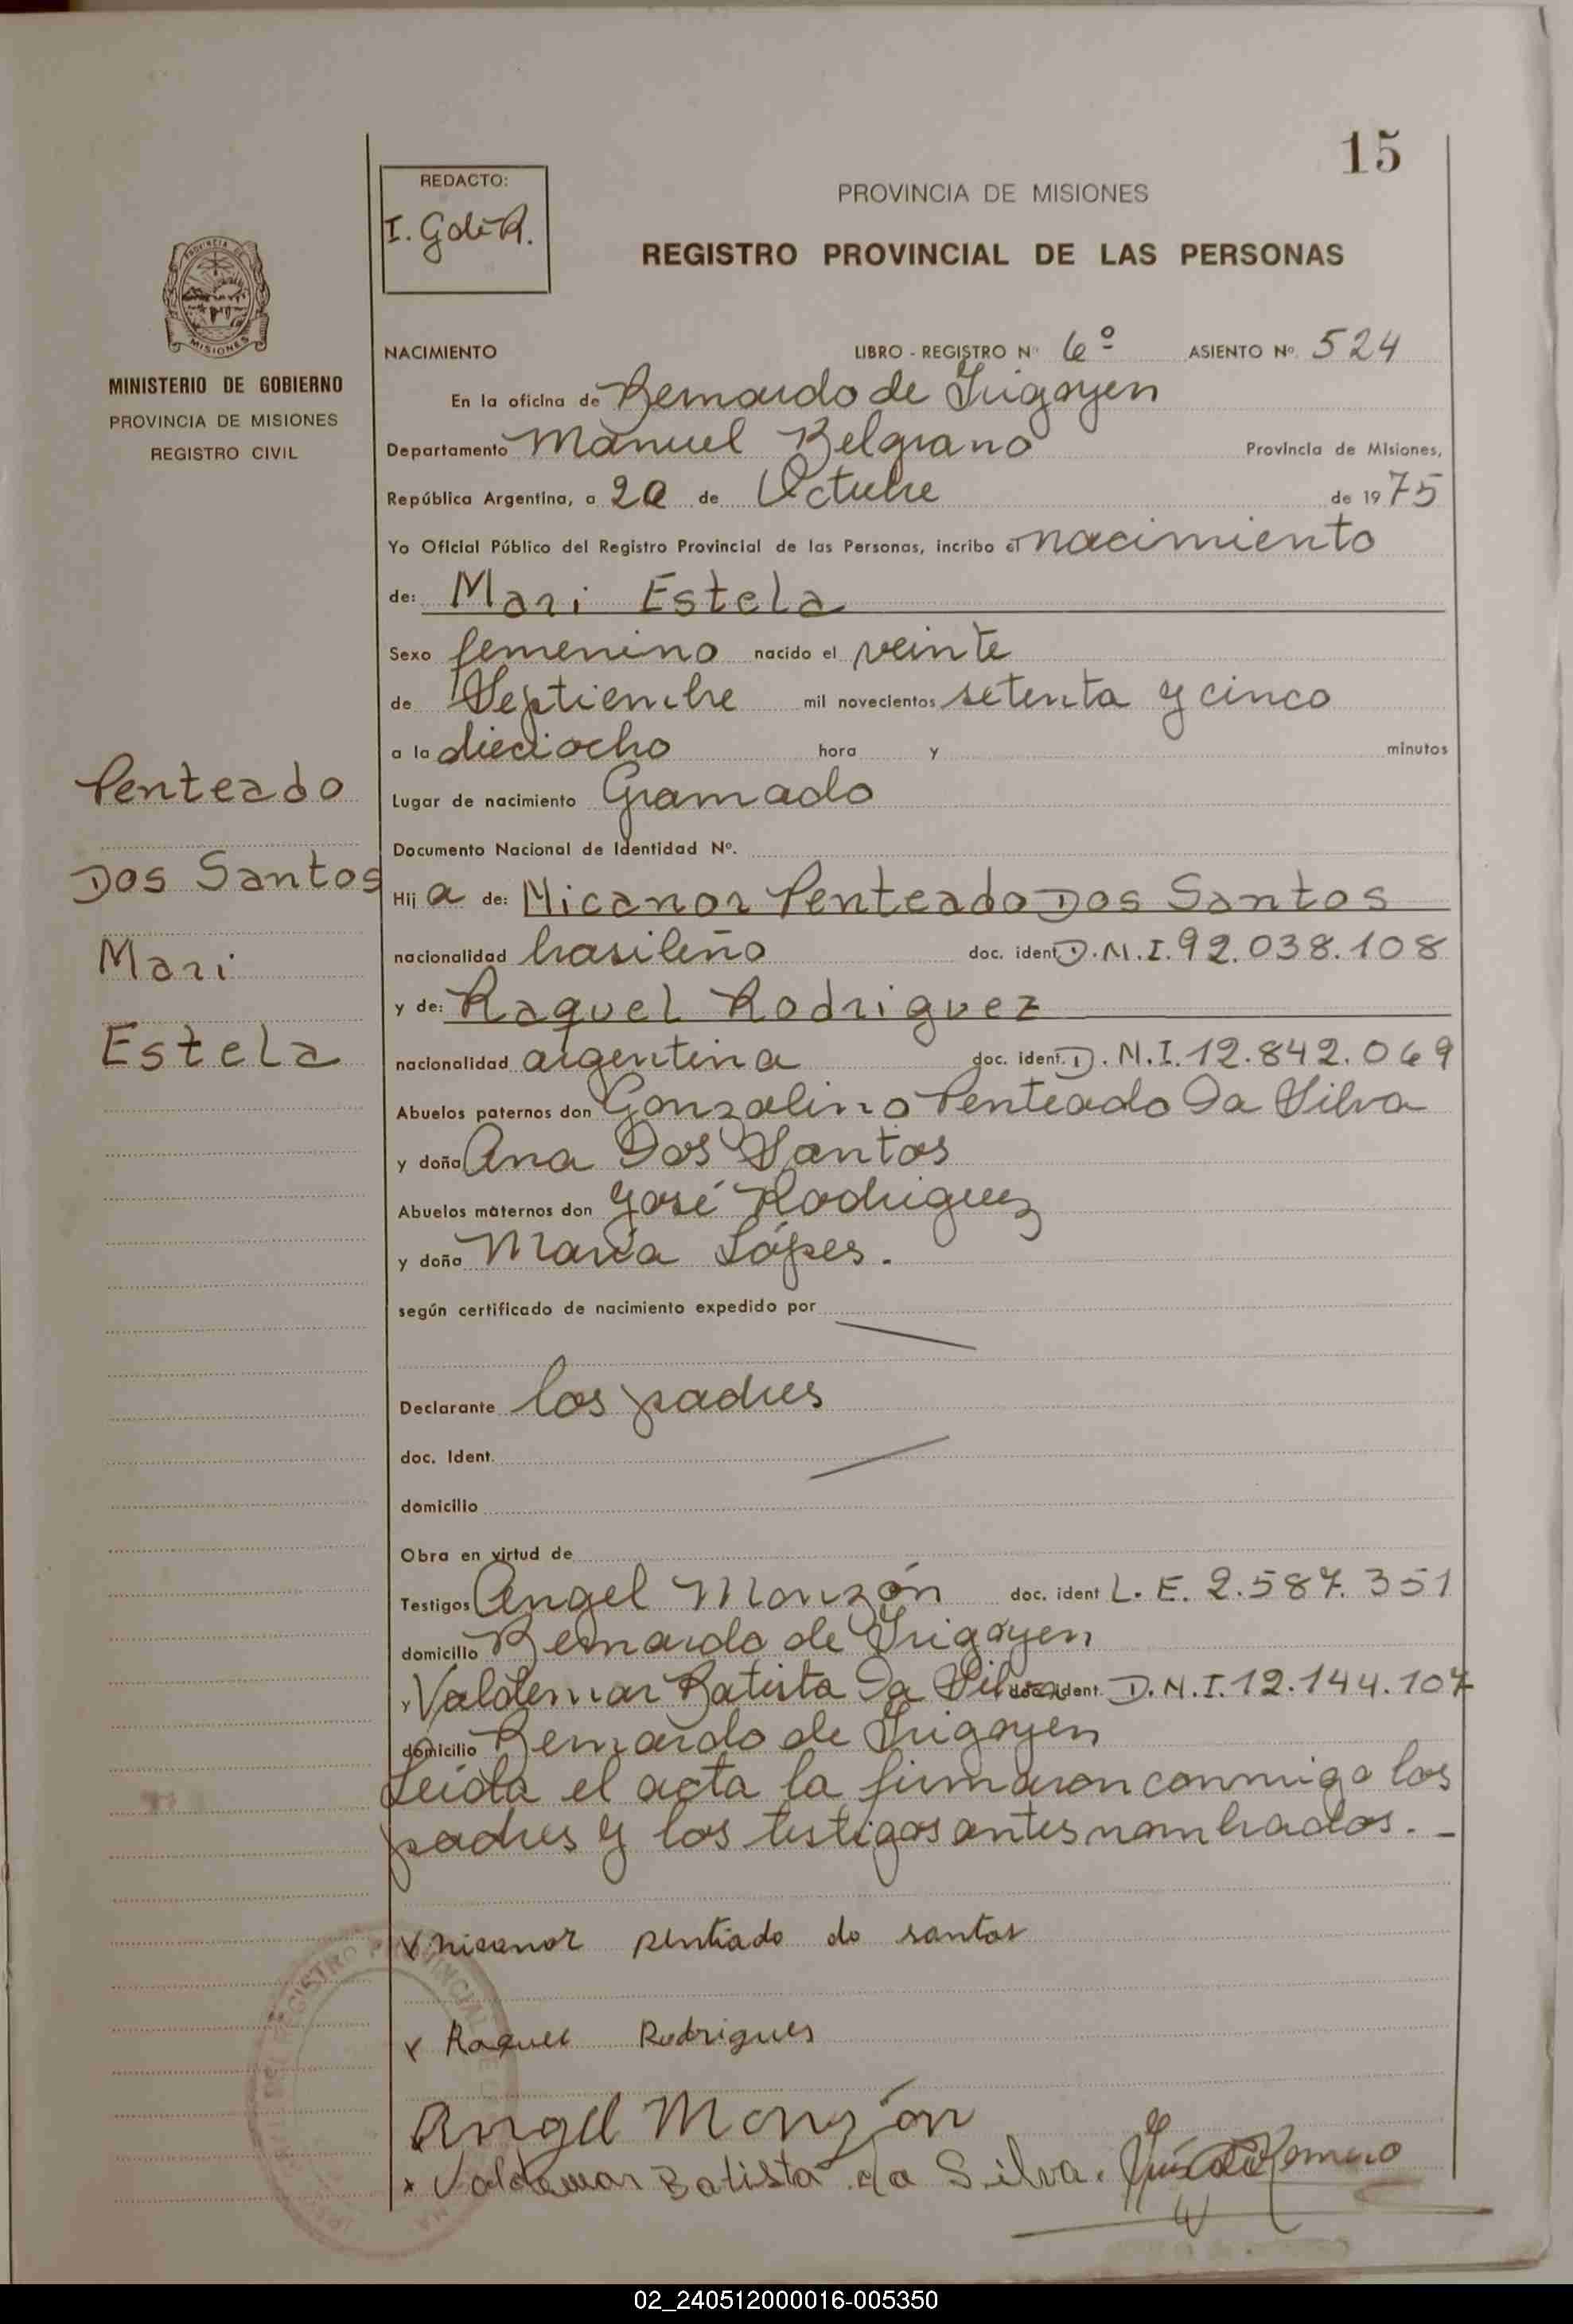 15
REDACTO:
I. Gde R.
PROVINCIA DE MISIONES
REGISTRO PROVINCIAL DE LAS PERSONAS
MISIONES
MINISTERIO DE GOBIERNO
PROVINCIA DE MISIONES
REGISTRO CIVIL
NACIMIENTO LIBRO - REGISTRO Nº 6º ASIENTO Nº 524
En la oficina de Bernardo de Irigoyen
Departamento Manuel Belgrano Provincia de Misiones,
República Argentina, a 20 de Octubre de 1975
Yo Oficial Público del Registro Provincial de las Personas, incribo el nacimiento
de: Mari Estela
Sexo femenino nacido el veinte
de Septiembre mil novecientos setenta y cinco
a la dieciocho hora y minutos
Lugar de nacimiento Gramado
Documento Nacional de Identidad Nº.
Penteado
Dos Santos
Mari
Estela
Hija de: Nicanor Penteado Dos Santos
nacionalidad brasileño doc. ident D.N.I. 92.038.108
y de: Raquel Rodriguez
nacionalidad argentina doc. ident. D.N.I. 12.842.069
Abuelos paternos don Gonzalino Penteado Da Silva
y doña Ana Dos Santos
Abuelos maternos don José Rodriguez
y doña María Lópes.
según certificado de nacimiento expedido por
Declarante los padres
doc. Ident.
domicilio
Obra en virtud de
Testigos Angel Monzón doc. ident L.E. 2.587.351
domicilio Bernardo de Irigoyen
y Valdemar Batista Da Silva doc. ident. D.N.I. 12.144.107
domicilio Bernardo de Irigoyen
Leida el acta la firmaron conmigo los
padres y los testigos antes nombrados. -
x nicanor pentiado do santos
x Raquel Rodrigues
Angel Monzón
x Valdemar Batista da Silva.
02_240512000016-005350